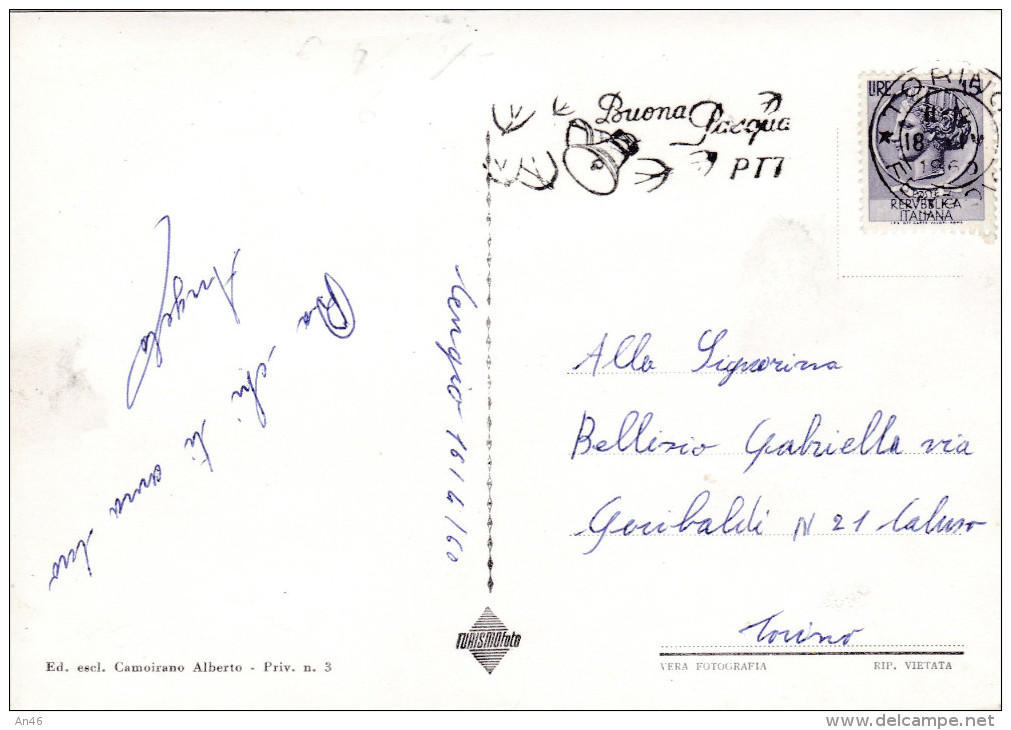 Buona Pasqua
PTT
LIRE 15
TORINO
18
REPVBBLICA
ITALIANA
Da
chi ti ama
tuo
Angelo
16/4/60
Alla Signorina
Bellizio Gabriella via
Garibaldi N 21 Caluso
Torino
TURISMOfoto
Ed. escl. Camoirano Alberto - Priv. n. 3
VERA FOTOGRAFIA
RIP. VIETATA
An46
www.delcampe.net